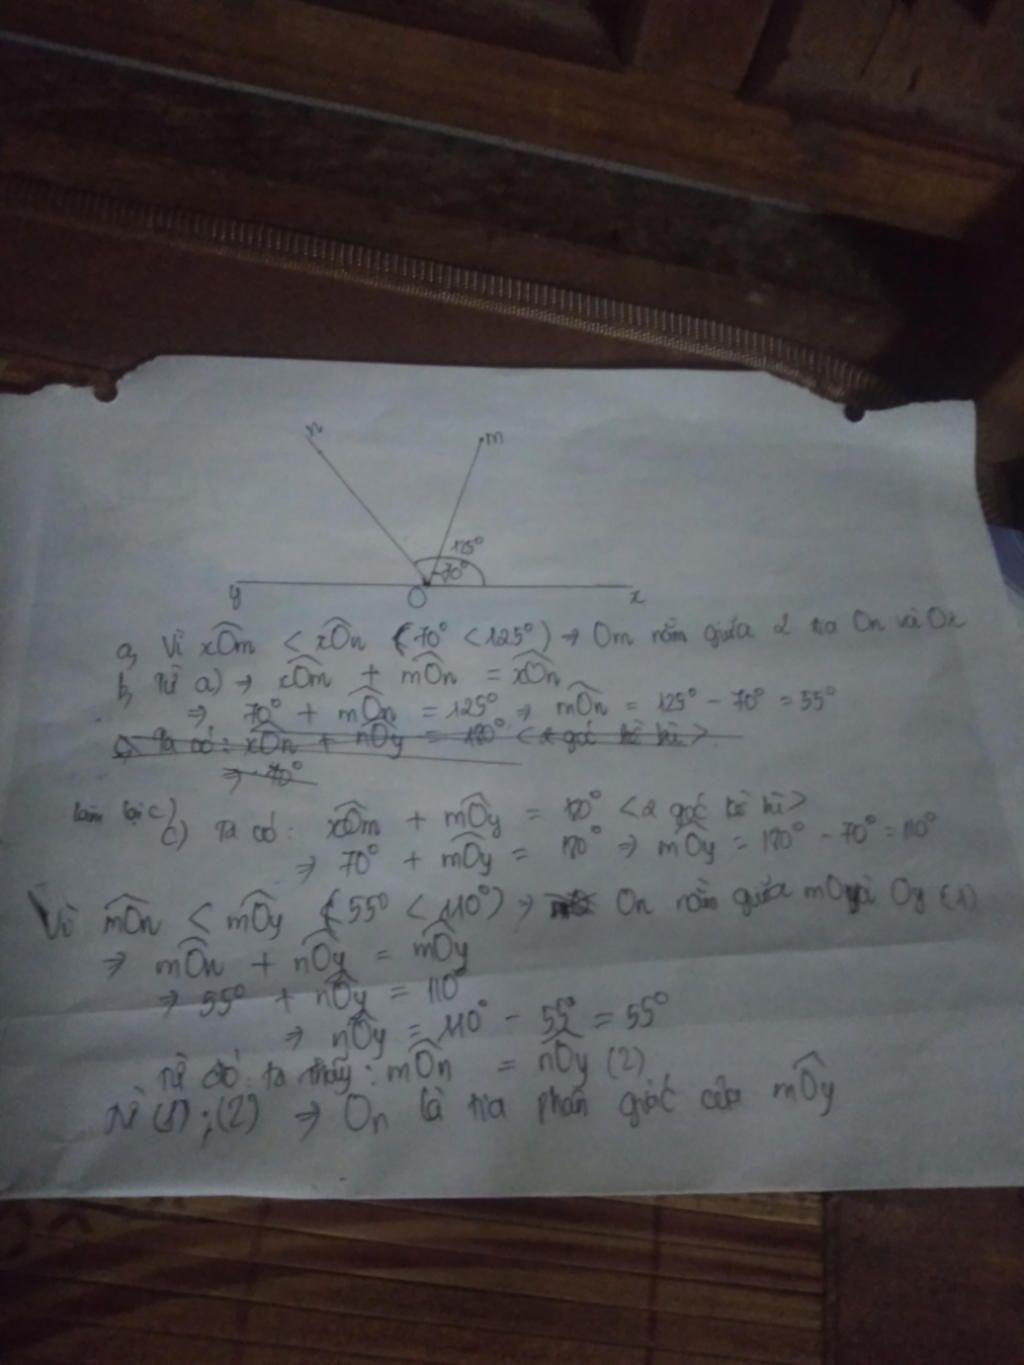 n
m
125°
70°
y
O
x
a, Vì xÔm < xÔn (70° < 125°) → Om nằm giữa 2 tia On và Ox
b, Từ a) → xÔm + mÔn = xÔn
⇒ 70° + mÔn = 125° ⇒ mÔn = 125° - 70° = 55°
c, Ta có: xÔn + nÔy = 180° <2 góc kề bù>
⇒ 70°
làm lại c)
c) Ta có: xÔm + mÔy = 180° <2 góc kề bù>
⇒ 70° + mÔy = 180° ⇒ mÔy = 180° - 70° = 110°
Vì mÔn < mÔy (55° < 110°) ⇒ On nằm giữa mO và Oy (1)
⇒ mÔn + nÔy = mÔy
⇒ 55° + nÔy = 110°
⇒ nÔy = 110° - 55° = 55°
Từ đó ta thấy: mÔn = nÔy (2)
Từ (1); (2) ⇒ On là tia phân giác của mÔy